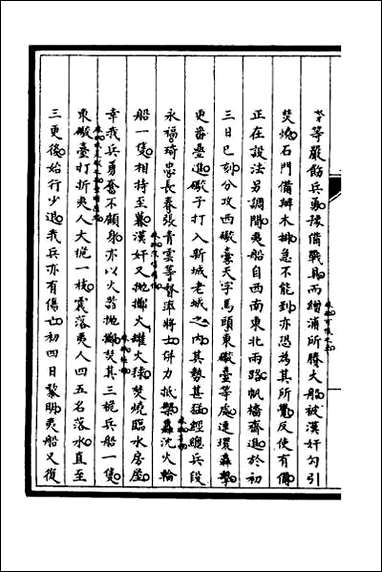 等嚴飭兵勇豫備戰具而繒浦所勝大船被漢奸勾引
焚燒石門備辦木排急不能到亦恐為其所覺反使有備
正在設法另調間夷船自西南東北兩路帆檣齊進於初
三日巳刻分攻西礮臺天字馬頭東礮臺等處連環轟擊
更番疊進礮子打入新城老城之內其勢甚猛經總兵段
永福琦忠長春張青雲等督率將士併力抵禦轟沈火輪
船一隻相持至暮漢奸又拋擲火罐火毬焚燒臨水房屋
幸我兵勇奮不顧身亦以火器拋擲焚其三桅兵船一隻
東礮臺打折夷人大桅一枝震落夷人四五名落水直至
三更後始行少退我兵亦有傷亡初四日黎明夷船又復